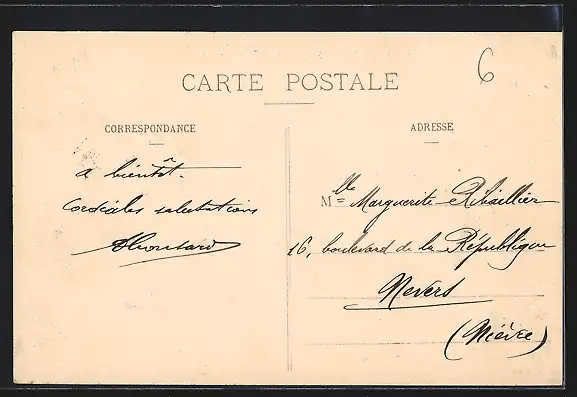 6
CARTE POSTALE
CORRESPONDANCE
ADRESSE
a bientôt.
Cordiales salutations
Mlle Marguerite Ribaillier
16, boulevard de la République
Nevers
(Nièvre)